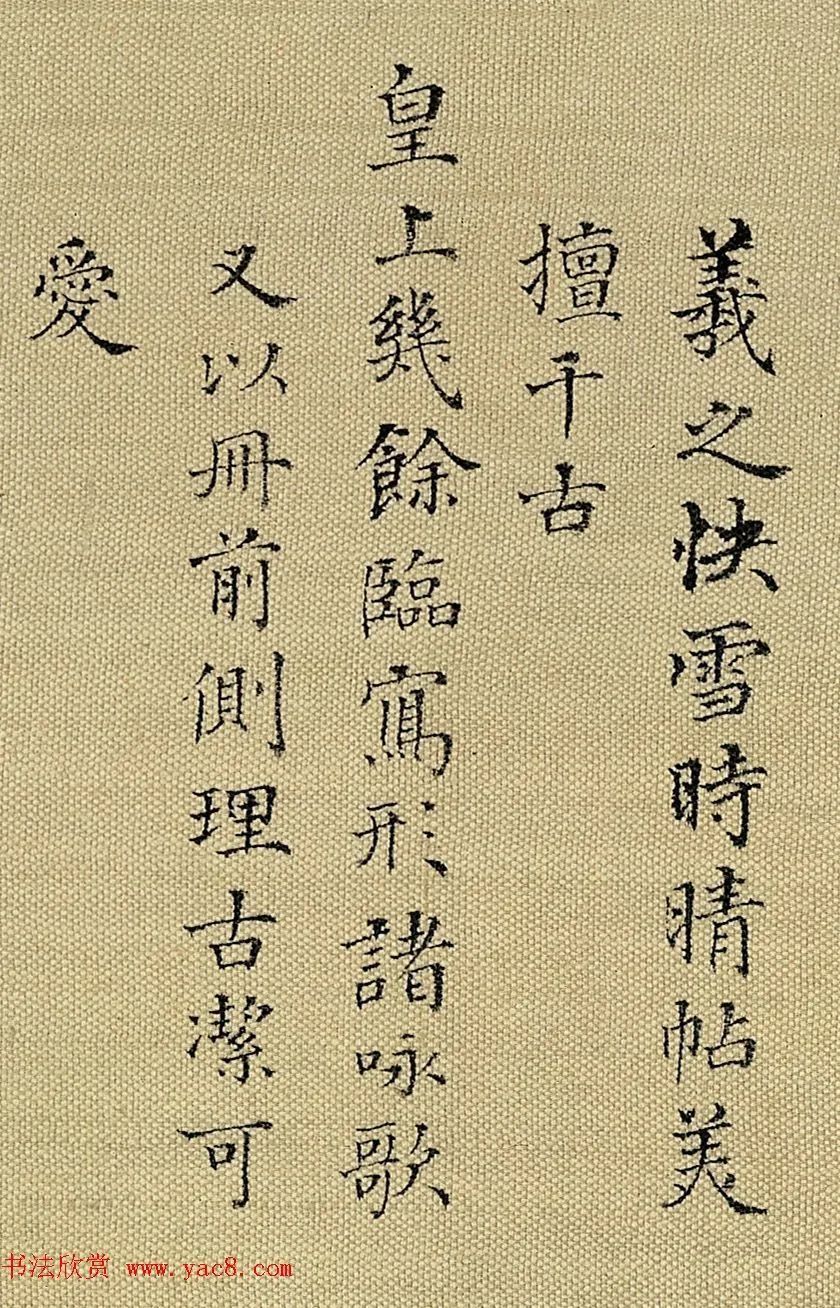 羲之快雪時晴帖美
擅千古
皇上幾餘臨寫形諸咏歌
又以冊前側理古潔可
愛
书法欣赏 www.yac8.com